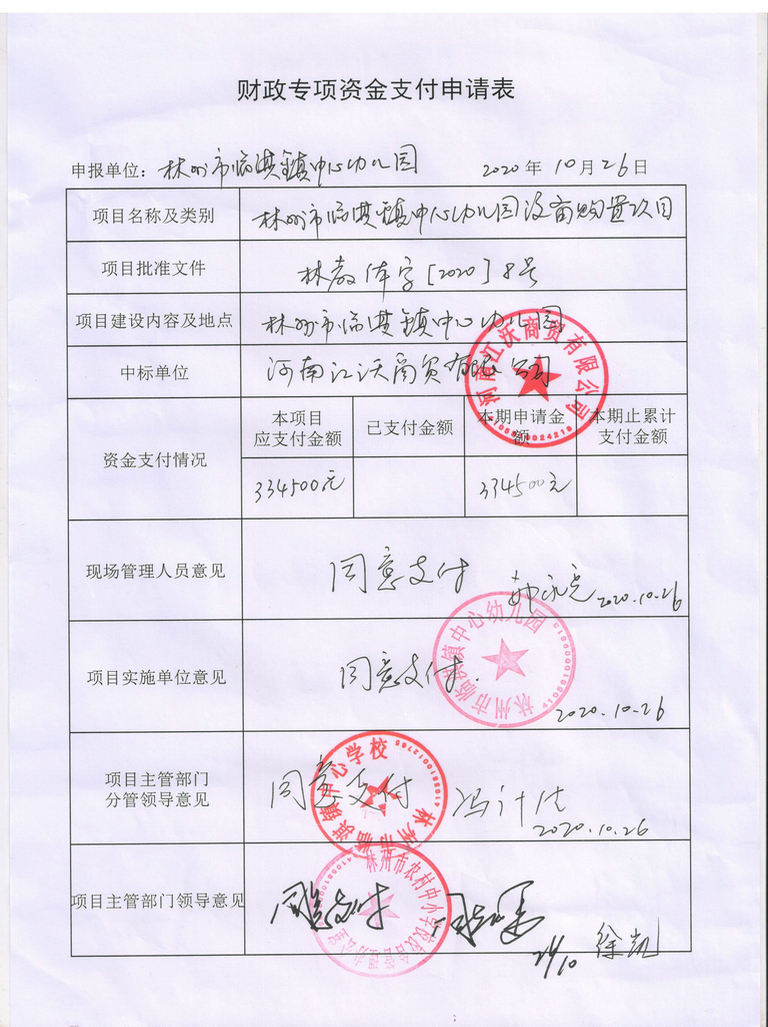 财政专项资金支付申请表
申报单位：林州市临淇镇中心幼儿园 2020年10月26日
项目名称及类别 林州市临淇镇中心幼儿园设备购置项目
项目批准文件 林教体字[2020]8号
项目建设内容及地点 林州市临淇镇中心幼儿园
中标单位 河南江沃商贸有限公司
河南江沃商贸有限公司
资金支付情况
本项目应支付金额 已支付金额 本期申请金额 本期止累计支付金额
334500元 334500元
现场管理人员意见 同意支付
2020.10.26
项目实施单位意见 同意支付.
林州市临淇镇中心幼儿园
2020.10.26
项目主管部门分管领导意见 同意支付
林州市临淇镇中心学校
2020.10.26
项目主管部门领导意见 同意支付
林州市农村中小学校校舍管理办公室
26/10 徐凯